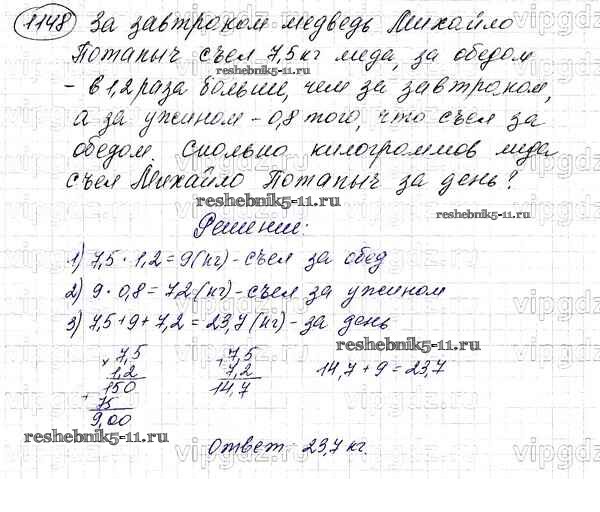 1148 За завтраком медведь Михайло
Потапыч съел 7,5 кг меда, за обедом
- в 1,2 раза больше, чем за завтраком,
а за ужином - 0,8 того, что съел за
обедом. Сколько килограммов меда
съел Михайло Потапыч за день?
Решение:
1) 7,5 · 1,2 = 9 (кг) - съел за обед
2) 9 · 0,8 = 7,2 (кг) - съел за ужином
3) 7,5 + 9 + 7,2 = 23,7 (кг) - за день
× 7,5
1,2
150
+ 75
9,00
+ 7,5
7,2
14,7
14,7 + 9 = 23,7
Ответ: 23,7 кг.
reshebnik5-11.ru
reshebnik5-11.ru
reshebnik5-11.ru
reshebnik5-11.ru
reshebnik5-11.ru
vipgdz.ru